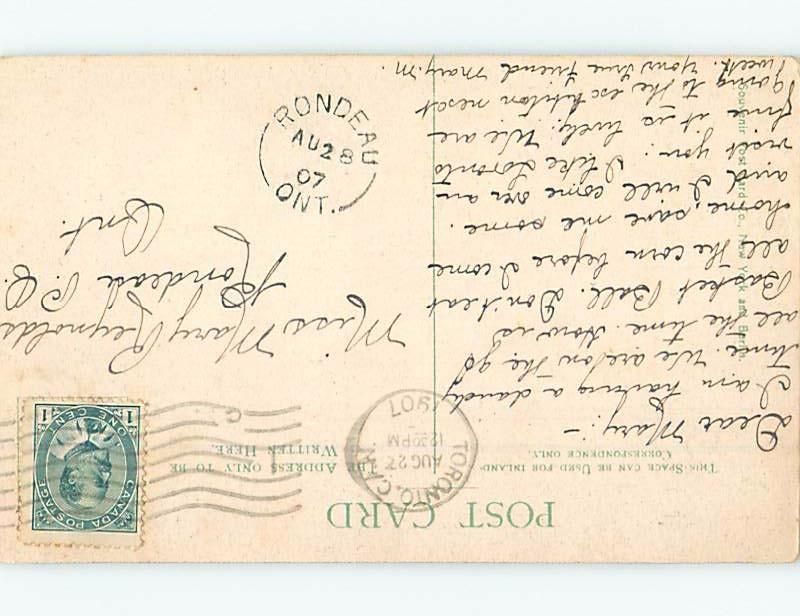 POST CARD
THIS SPACE CAN BE USED FOR INLAND
CORRESPONDENCE ONLY.
THE ADDRESS ONLY TO BE
WRITTEN HERE.
Dear Mary:-
I am having a dandy
time. We are on the go
all the time. How is
Basket Ball. Don't eat
all the corn before I come
home, save me some.
and I will come over an
visit you. I like Toronto
fine it is lively. We are
going to the exhibition nesat
week. Your true friend Mary. M.
Miss Mary Reynolds
Rondeau P.O.
Ont.
Souvenir Post Card Co., New York and Berlin
TORONTO, CAN.
AUG 27
12:30 PM
1907
CANADA POSTAGE
ONE CENT
1 1
RONDEAU
AU 28
07
ONT.